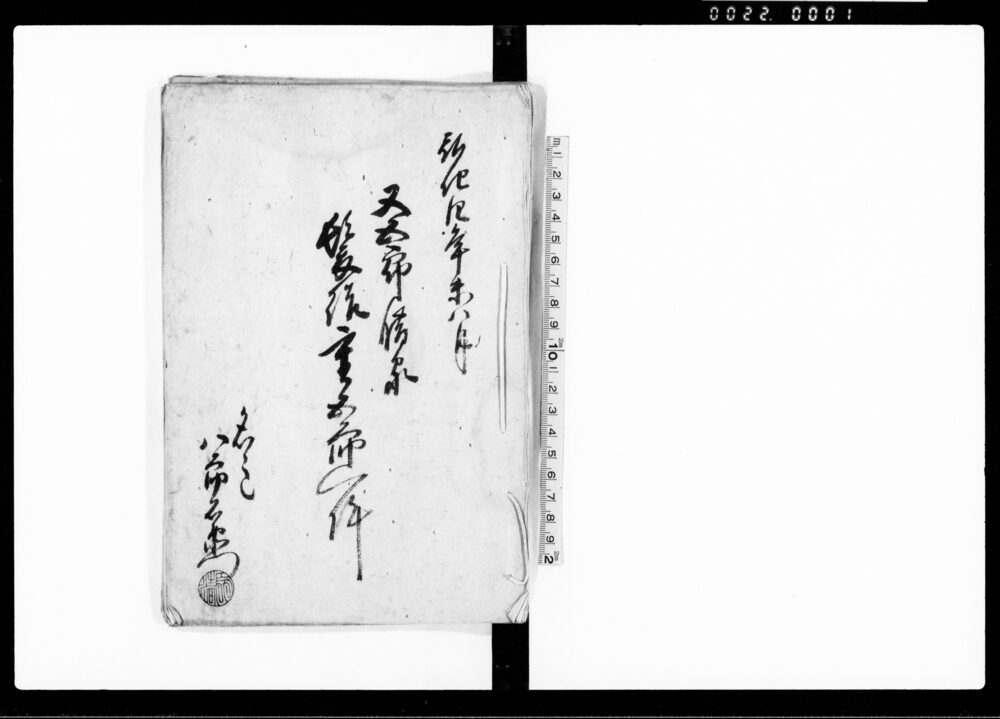 0022. 0001
弘化四年未八月
又五郎借家
髪結重五郎一件
名主
八郎右衛門
m 1 2 3 4 5 6 7 8 9 10 1 2 3 4 5 6 7 8 9 2